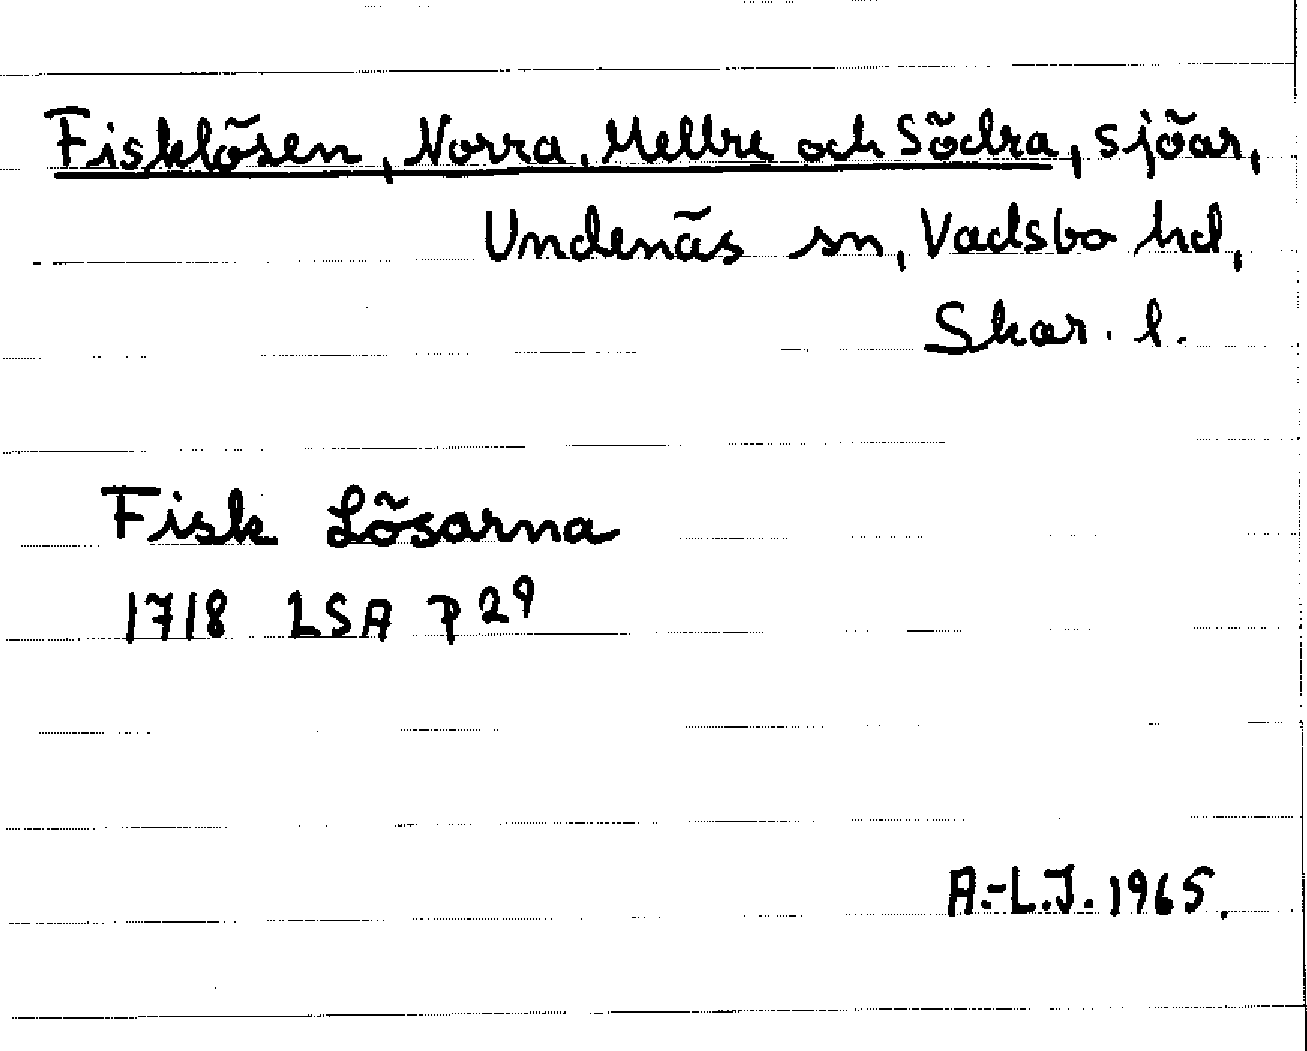 Fisklösen, Norra, Mellre och Södra, sjöar,
Undenäs sn, Vadsbo hd,
Skar. l.
Fisk Lösarna
1718 LSA P 29
A.-L.J. 1965.